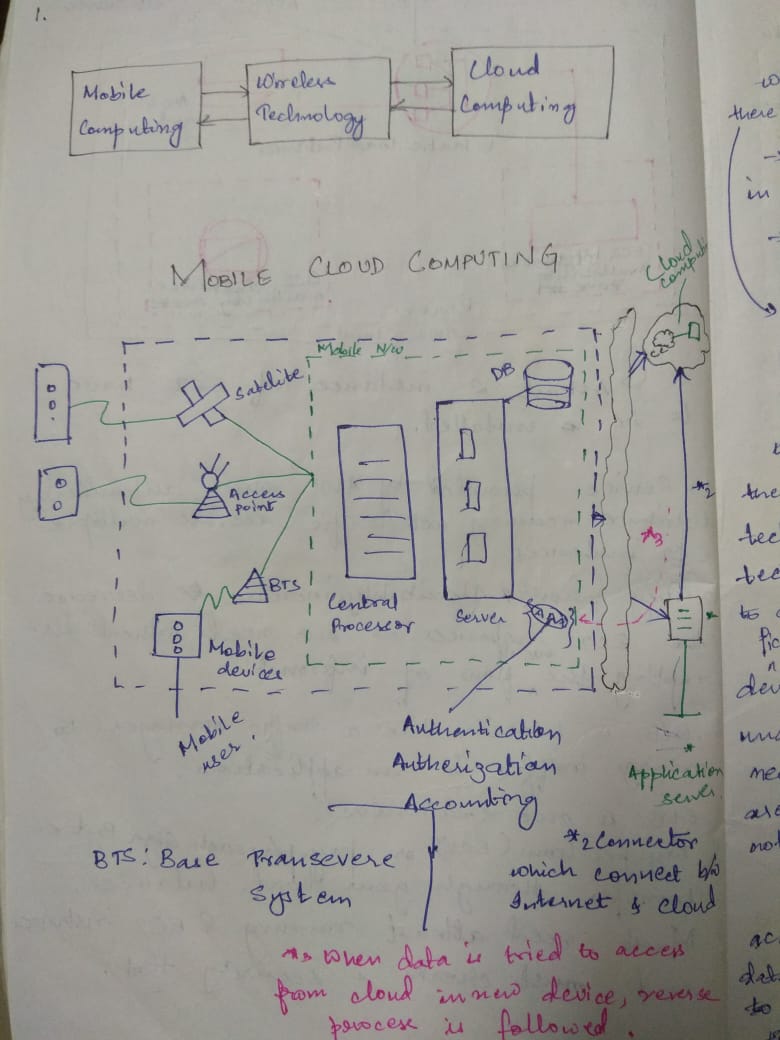 1.
Mobile
Computing
Wireless
Technology
Cloud
Computing
MOBILE CLOUD COMPUTING
Cloud
Computi
Mobile N/w
Satelite
DB
Access
point
BTS
*2
*3
Central
Processor
Server
AAA
Mobile
devices
Mobile
user.
Authentication
Autherization
Accounting
*
*
Application
server
BTS: Base Transevere
System
*2 Connector
which connect b/w
Internet & cloud
*3 When data is tried to access
from cloud in new device, reverse
process is followed.
there
in
the
tec
tec
to
dev
me
not
ac
dat
to